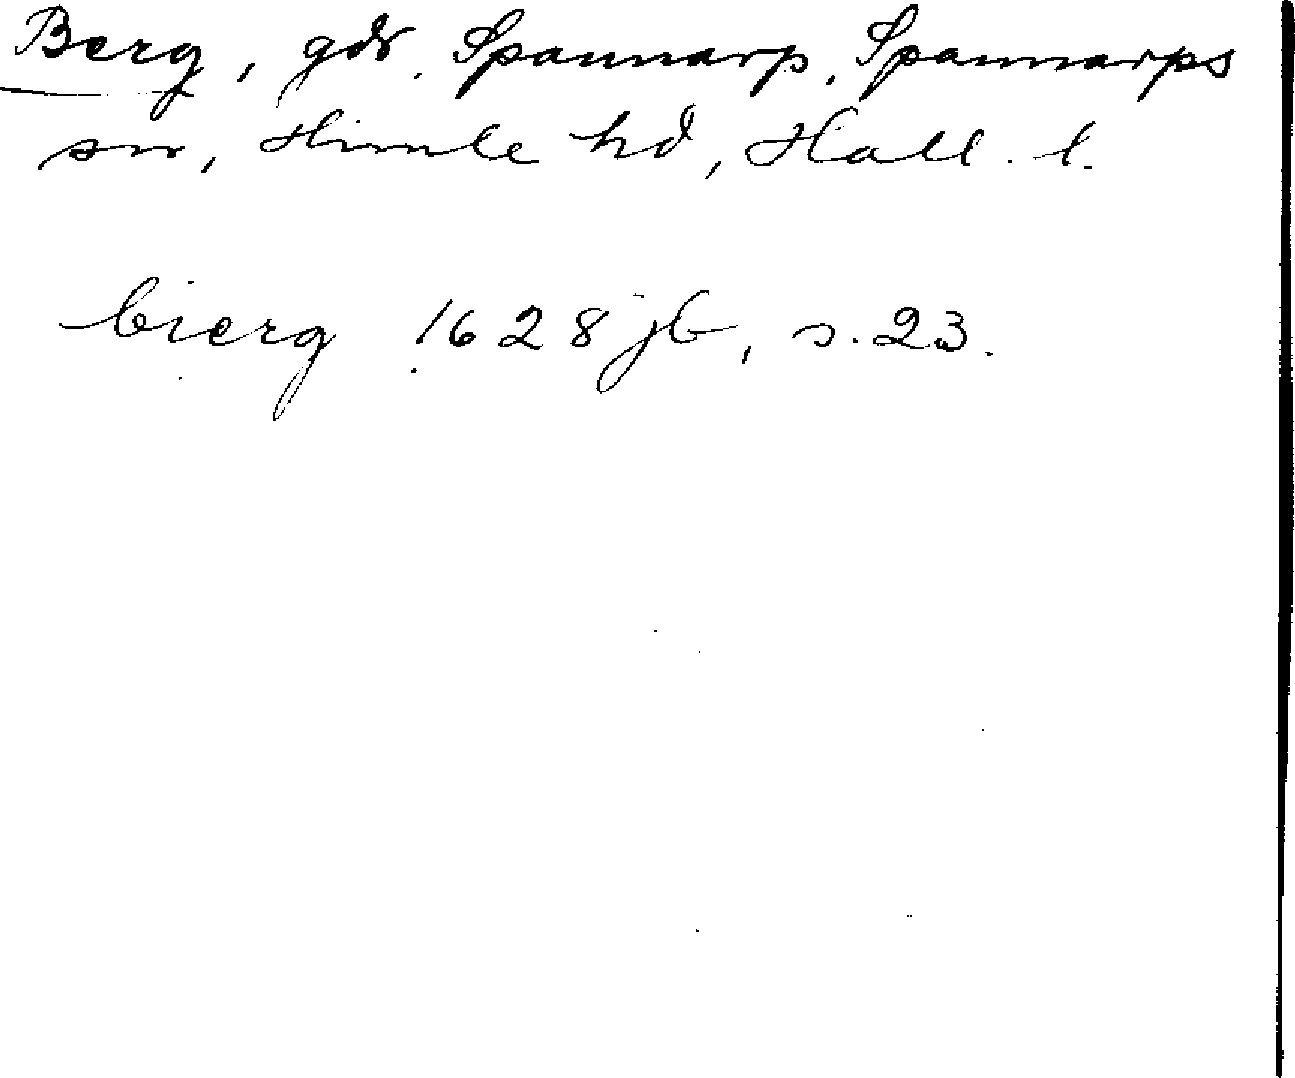 Berg, gdr. Spannarp, Spannarps
sn, Himle hd, Hall. l.
bierg 1628 jb, s. 23.